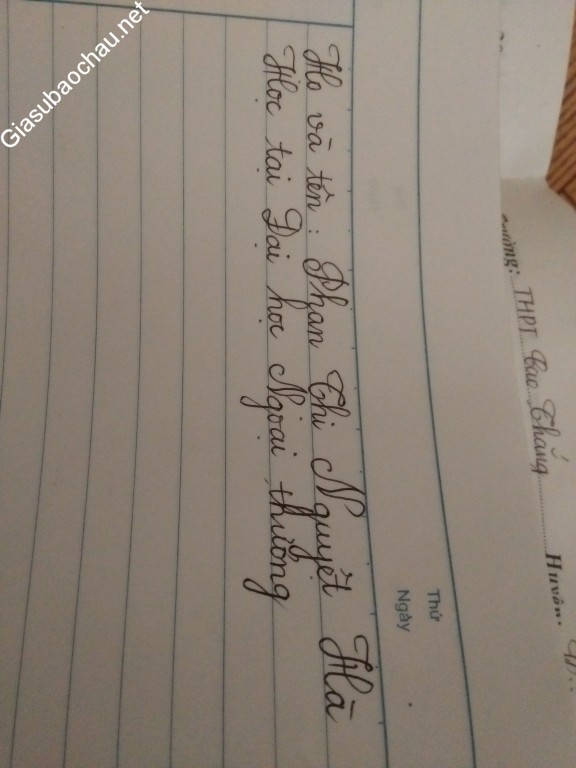 Giasubaochau.net
Trường: THPT Cao Thắng Huyện:
Thứ
Ngày
Họ và tên: Phan Thị Nguyệt Hà
Học tại Đại học Ngoại thương